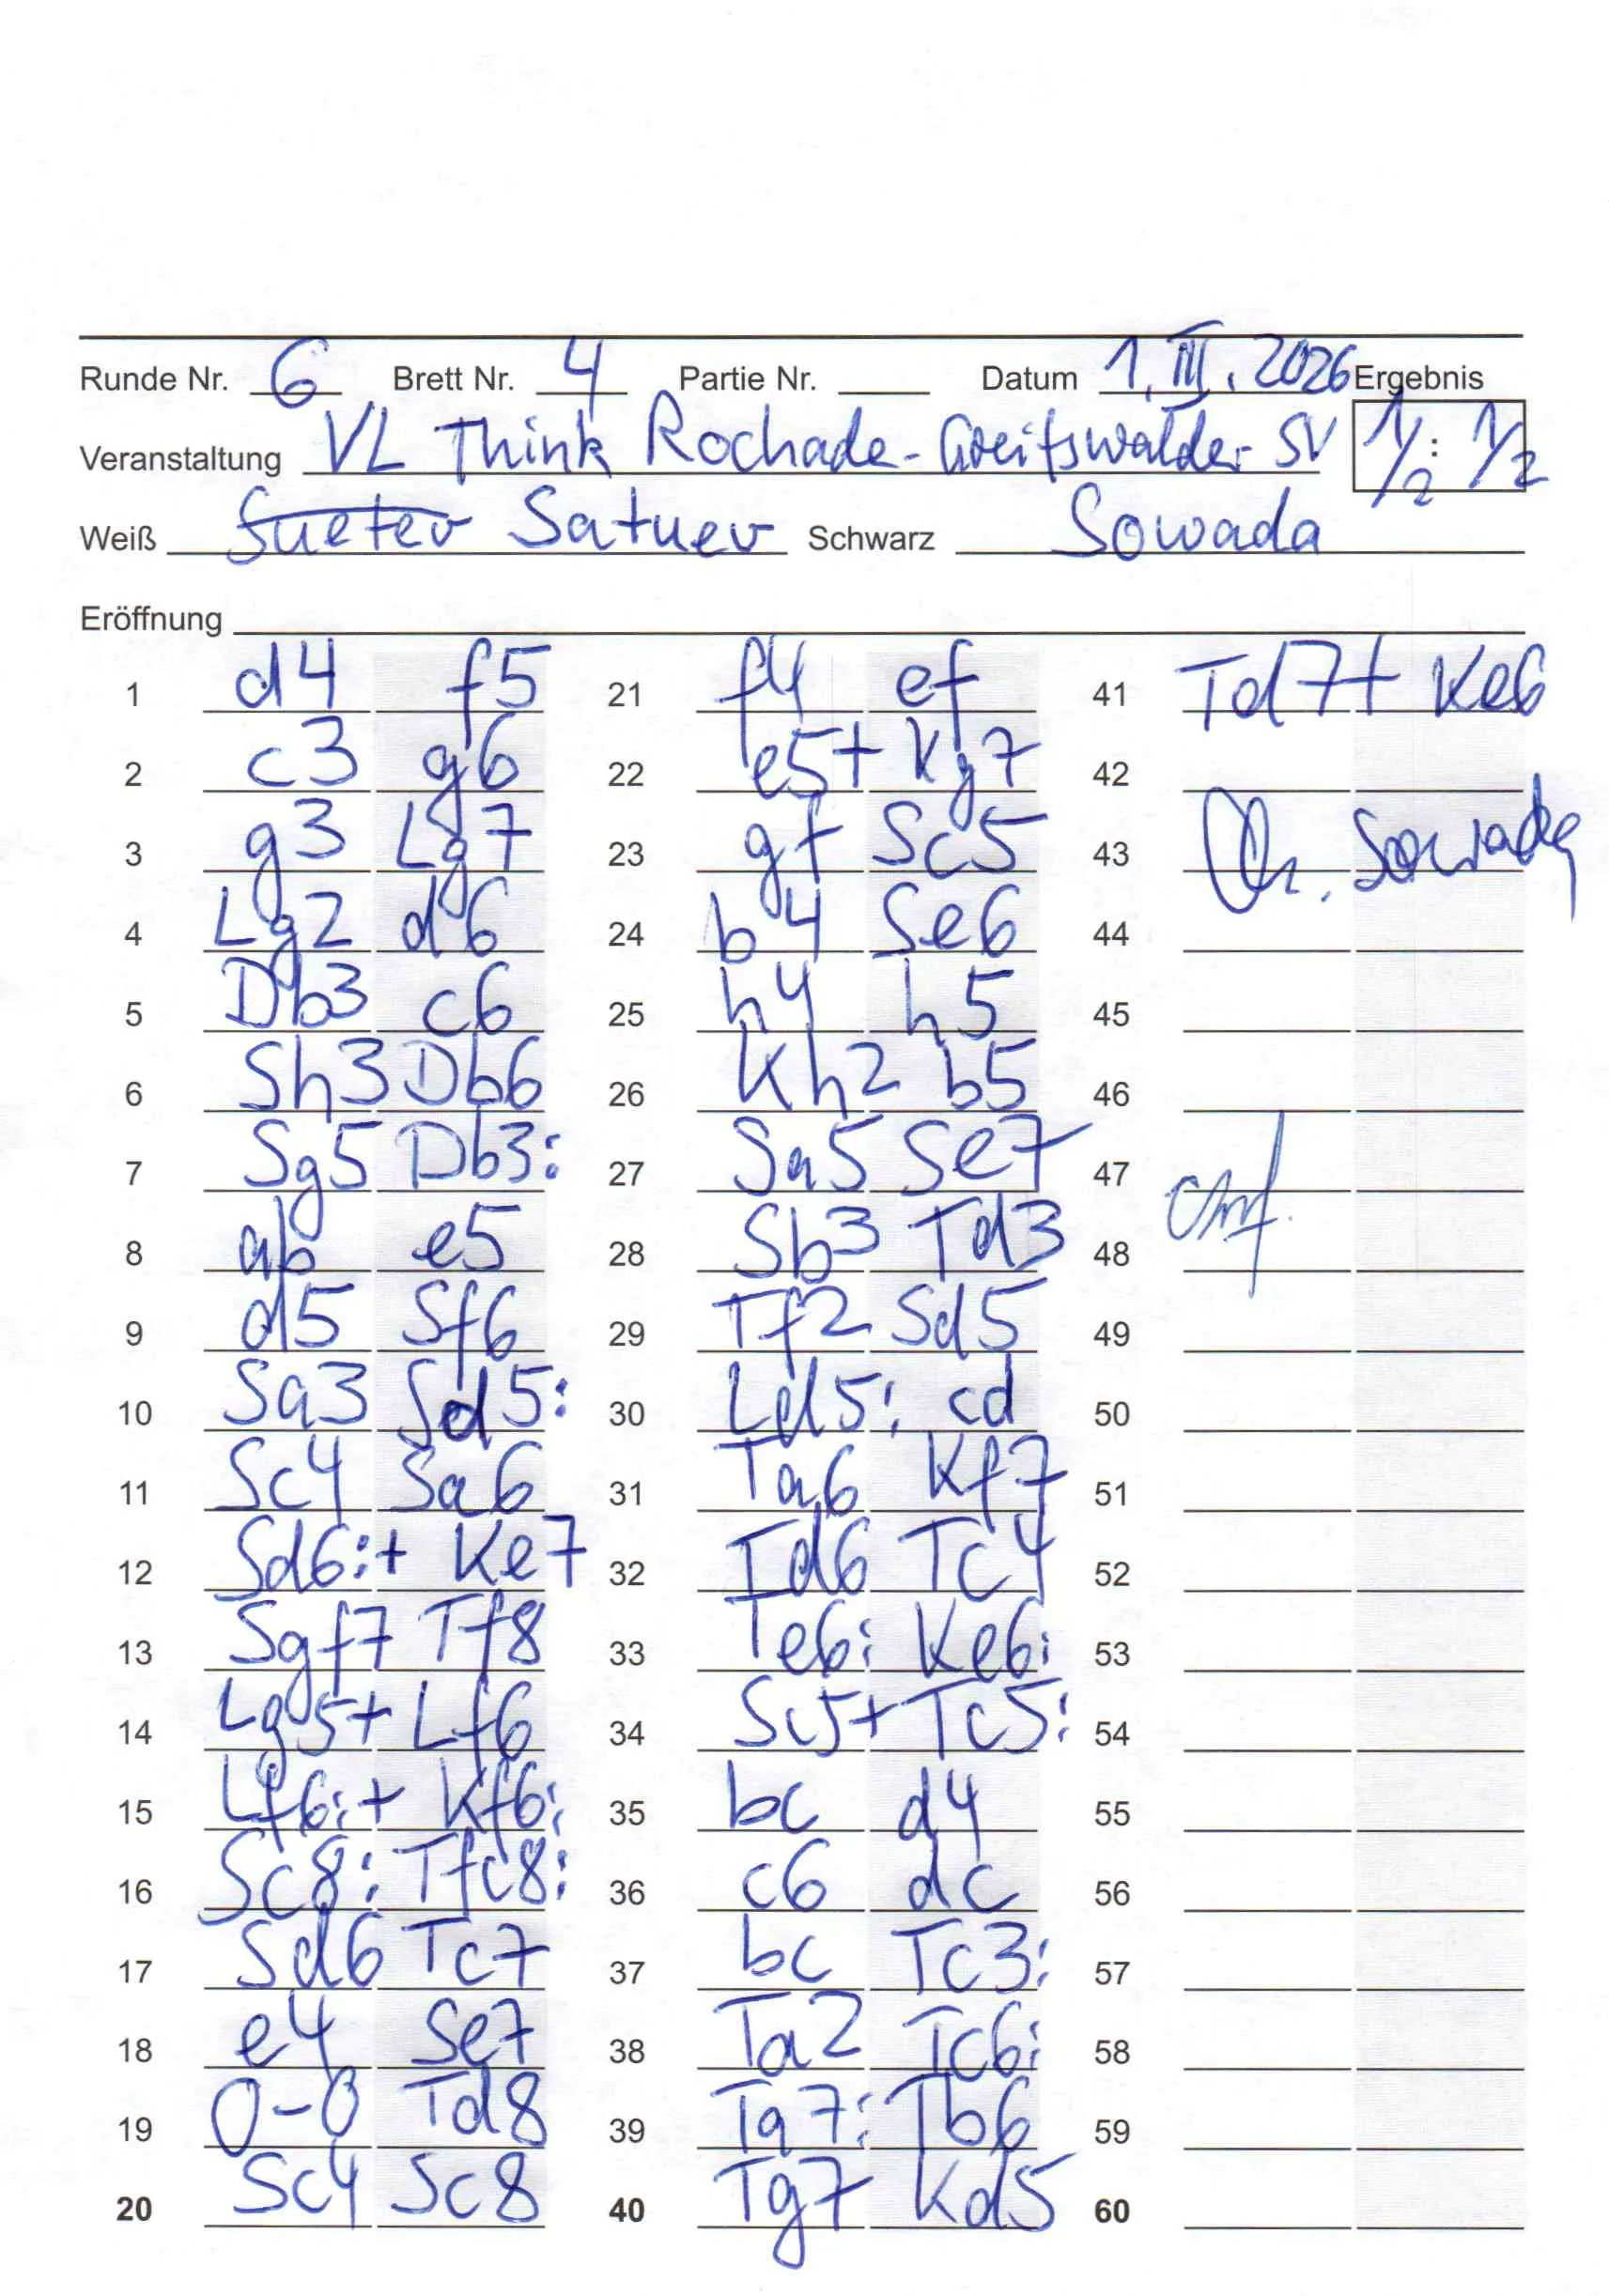 Runde Nr. 6 Brett Nr. 4 Partie Nr. Datum 1. III. 2026 Ergebnis
Veranstaltung VL Think Rochade - Greifswalder SV 1/2 : 1/2
Weiß Satuev Schwarz Sowada
Eröffnung
1 d4 f5
2 c3 g6
3 g3 Lg7
4 Lg2 d6
5 Db3 c6
6 Sh3 Db6
7 Sg5 Db3:
8 ab e5
9 d5 Sf6
10 Sa3 Sd5:
11 Sc4 Sa6
12 Sd6:+ Ke7
13 Sgf7 Tf8
14 Lg5+ Lf6
15 Lf6:+ Kf6:
16 Sc8: Tfc8:
17 Sd6 Tc7
18 e4 Se7
19 0-0 Td8
20 Sc4 Sc8
21 f4 ef
22 e5+ Kg7
23 gf Sc5
24 b4 Se6
25 h4 h5
26 Kh2 b5
27 Sa5 Se7
28 Sb3 Td3
29 Tf2 Sd5
30 Ld5: cd
31 Ta6 Kf7
32 Td6 Tc4
33 Te6: Ke6:
34 Sc5+ Tc5:
35 bc d4
36 c6 dc
37 bc Tc3:
38 Ta2 Tc6:
39 Ta7: Tb6
40 Tg7 Kd5
41 Td7+ Ke6
42
43 Sowada
44
45
46
47
48
49
50
51
52
53
54
55
56
57
58
59
60